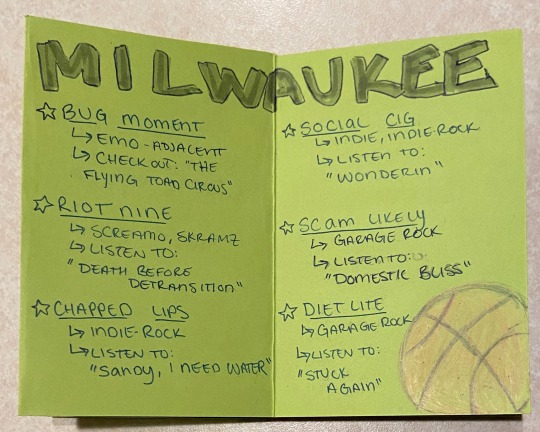 MILWAUKEE
☆ BUG MOMENT
↳ EMO-ADJACENT
↳ CHECK OUT: "THE
FLYING TOAD CIRCUS"
☆ RIOT NINE
↳ SCREAMO, SKRAMZ
↳ LISTEN TO:
"DEATH BEFORE
DETRANSITION"
☆ CHAPPED LIPS
↳ INDIE-ROCK
↳ LISTEN TO:
"SANDY, I NEED WATER"
☆ SOCIAL CIG
↳ INDIE, INDIE-ROCK
↳ LISTEN TO:
"WONDERIN"
☆ SCAM LIKELY
↳ GARAGE ROCK
↳ LISTEN TO:
"DOMESTIC BLISS"
☆ DIET LITE
↳ GARAGE ROCK
↳ LISTEN TO:
"STUCK
AGAIN"